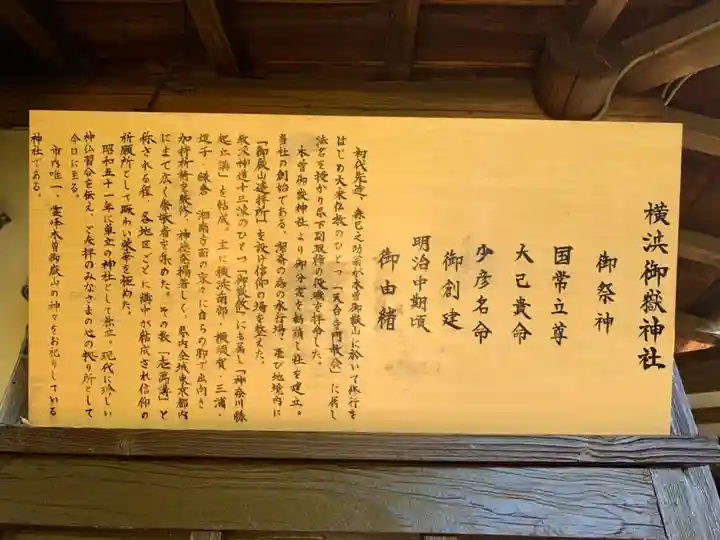 横浜御嶽神社
御祭神
国常立尊
大己貴命
少彦名命
御創建
明治中期頃
御由緒
初代先達、
之助翁が木曽御嶽山に於いて修行を
はじめ大乗仏教のひとつ「天台寺門教会」に属し
法名を授かり県下副取締の役職を拝命した。
木曽御嶽神社より御分霊を勧請し社を建立。
当社の創始である。潔斎の為の水行場、並び地境内に
「御嶽山遥拝所」を設け信仰の場を整えた。
教派神道十三派のひとつ「御嶽教」にも属し「神奈川勝
起火講」を結成。主に横浜南部・横須賀・三浦・
逗子・鎌倉・湘南方面の家々に自らの脚で出向き
加持祈祷を厳修。神徳発揚著しく、県内全域東京都内
にまで広く崇敬者を集めた。その数「壱萬講」と
称される程、各地区ごとに講中が結成され信仰の
祈願所として賑わい栄華を極めた。
昭和五十一年に単立の神社として独立。現代に珍しい
神仏習合を伝え、ご参拝のみなさまの心の拠り所として
今日に至る。
市内唯一、霊峰木曽御嶽山の神々をお祀りしている
神社である。